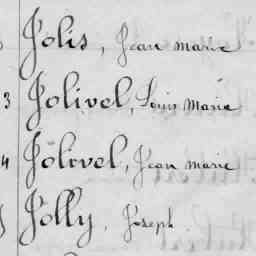 Jolis, Jean marie
3 Jolivel, Louis Marie
4 Jolivel, Jean marie
Jolly, Joseph